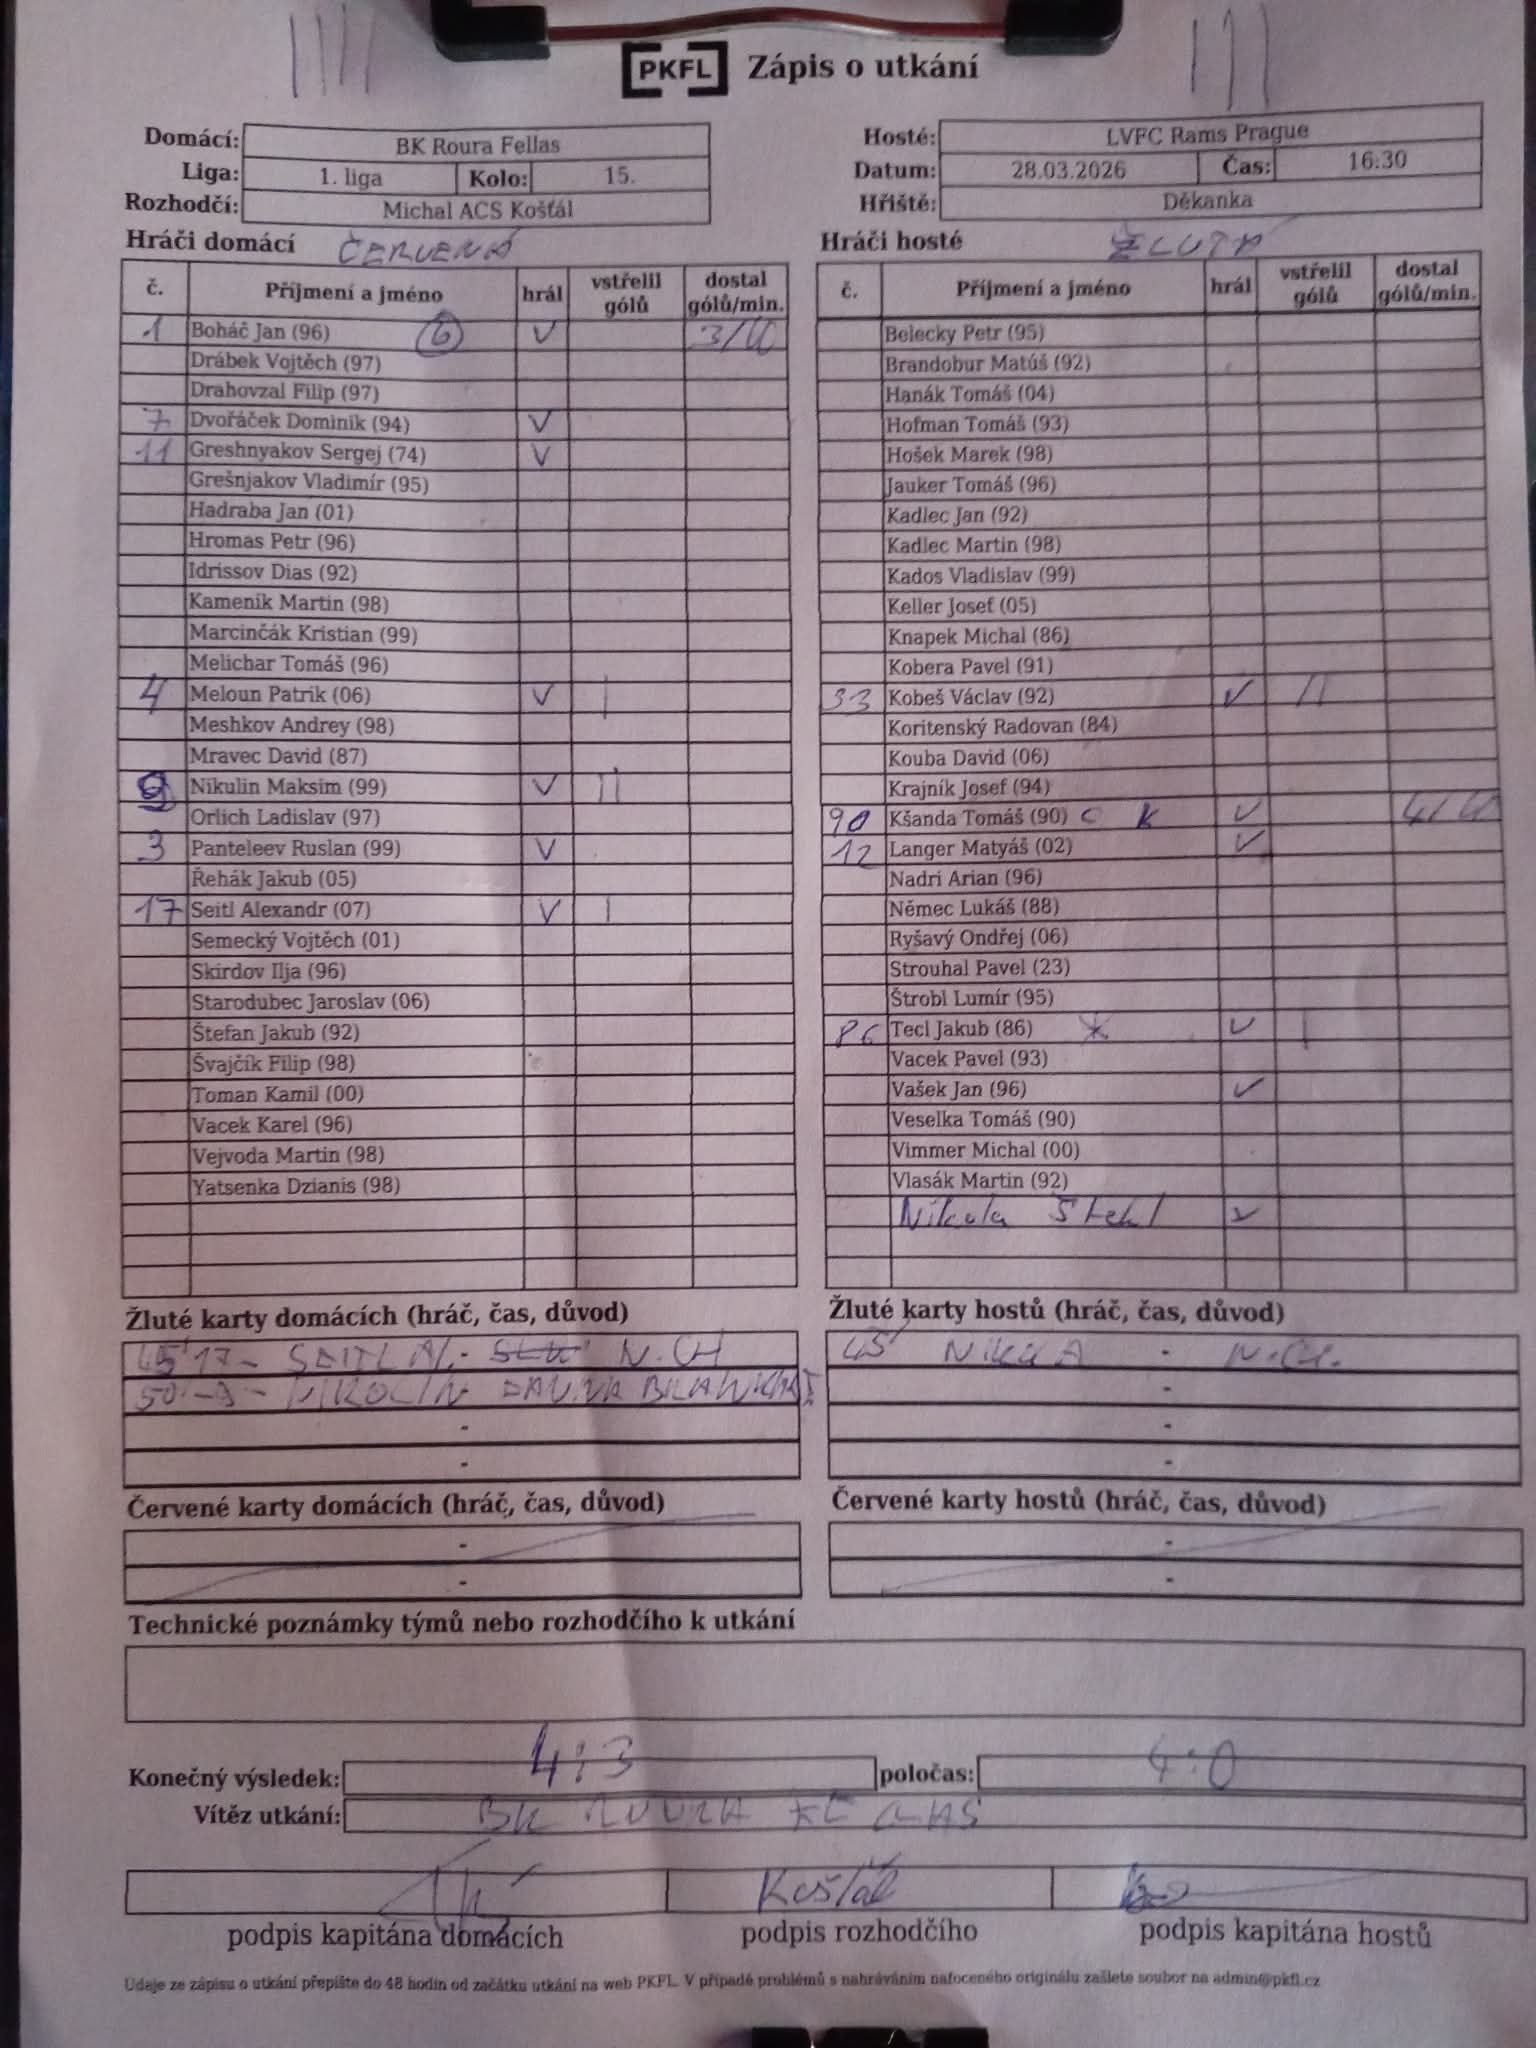 PKFL Zápis o utkání
Domácí: BK Roura Fellas
Liga: 1. liga Kolo: 15.
Rozhodčí: Michal ACS Košťál
Hosté: LVFC Rams Prague
Datum: 28.03.2026 Čas: 16:30
Hřiště: Děkanka
Hráči domácí ČERVENÁ
č. Příjmení a jméno hrál vstřelil gólů dostal gólů/min.
1 Boháč Jan (96) G V 3/
Drábek Vojtěch (97)
Drahovzal Filip (97)
7 Dvořáček Dominik (94) V
11 Greshnyakov Sergej (74) V
Grešnjakov Vladimír (95)
Hadraba Jan (01)
Hromas Petr (96)
Idrissov Dias (92)
Kameník Martin (98)
Marcinčák Kristian (99)
Melichar Tomáš (96)
4 Meloun Patrik (06) V |
Meshkov Andrey (98)
Mravec David (87)
9 Nikulin Maksim (99) V ||
Orlich Ladislav (97)
3 Panteleev Ruslan (99) V
Řehák Jakub (05)
17 Seitl Alexandr (07) V |
Semecký Vojtěch (01)
Skirdov Ilja (96)
Starodubec Jaroslav (06)
Štefan Jakub (92)
Švajčík Filip (98)
Toman Kamil (00)
Vacek Karel (96)
Vejvoda Martin (98)
Yatsenka Dzianis (98)
Hráči hosté ŽLUTÁ
č. Příjmení a jméno hrál vstřelil gólů dostal gólů/min.
Belecky Petr (95)
Brandobur Matúš (92)
Hanák Tomáš (04)
Hofman Tomáš (93)
Hošek Marek (98)
Jauker Tomáš (96)
Kadlec Jan (92)
Kadlec Martin (98)
Kados Vladislav (99)
Keller Josef (05)
Knapek Michal (86)
Kobera Pavel (91)
33 Kobeš Václav (92) V ||
Koritenský Radovan (84)
Kouba David (06)
Krajník Josef (94)
90 Kšanda Tomáš (90) C K V 4/
12 Langer Matyáš (02) V
Nadri Arian (96)
Němec Lukáš (88)
Ryšavý Ondřej (06)
Strouhal Pavel (23)
Štrobl Lumír (95)
86 Tecl Jakub (86) V |
Vacek Pavel (93)
Vašek Jan (96) V
Veselka Tomáš (90)
Vimmer Michal (00)
Vlasák Martin (92)
Nikola Štehl V
Žluté karty domácích (hráč, čas, důvod)
45' 17 - SEITL AL. - N.CH
50' - 9 - NIKOLIN
Žluté karty hostů (hráč, čas, důvod)
45' NIKOLA - N.CH.
Červené karty domácích (hráč, čas, důvod)
Červené karty hostů (hráč, čas, důvod)
Technické poznámky týmů nebo rozhodčího k utkání
Konečný výsledek: 4:3 poločas: 4:0
Vítěz utkání: BK ROURA FELLAS
Košťál
podpis kapitána domácích podpis rozhodčího podpis kapitána hostů
Údaje ze zápisu o utkání přepište do 48 hodin od začátku utkání na web PKFL. V případě problémů s nahráváním nafoceného originálu zašlete soubor na admin@pkfl.cz